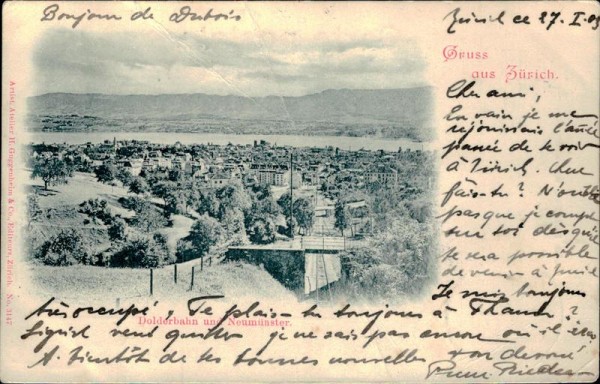 Bonjour de Dubois
Zürich ce 27. I. 03
Gruss
aus Zürich.
Cher ami,
En vain je me
réjouissais l'année
passée de te voir
à Zürich. Que
fais-tu? N'oublie
pas que je compte
sur toi dès qu'il
te sera possible
de venir à
Je suis toujours
très occupé, Te plais-tu toujours à Thann?
veut quitter je ne sais pas encore où il ira
A bientôt de tes bonnes nouvelles ton dévoué
Dolderbahn und Neumünster.
Artist. Atelier H. Guggenheim & Co., Editeurs, Zürich. No. 3142